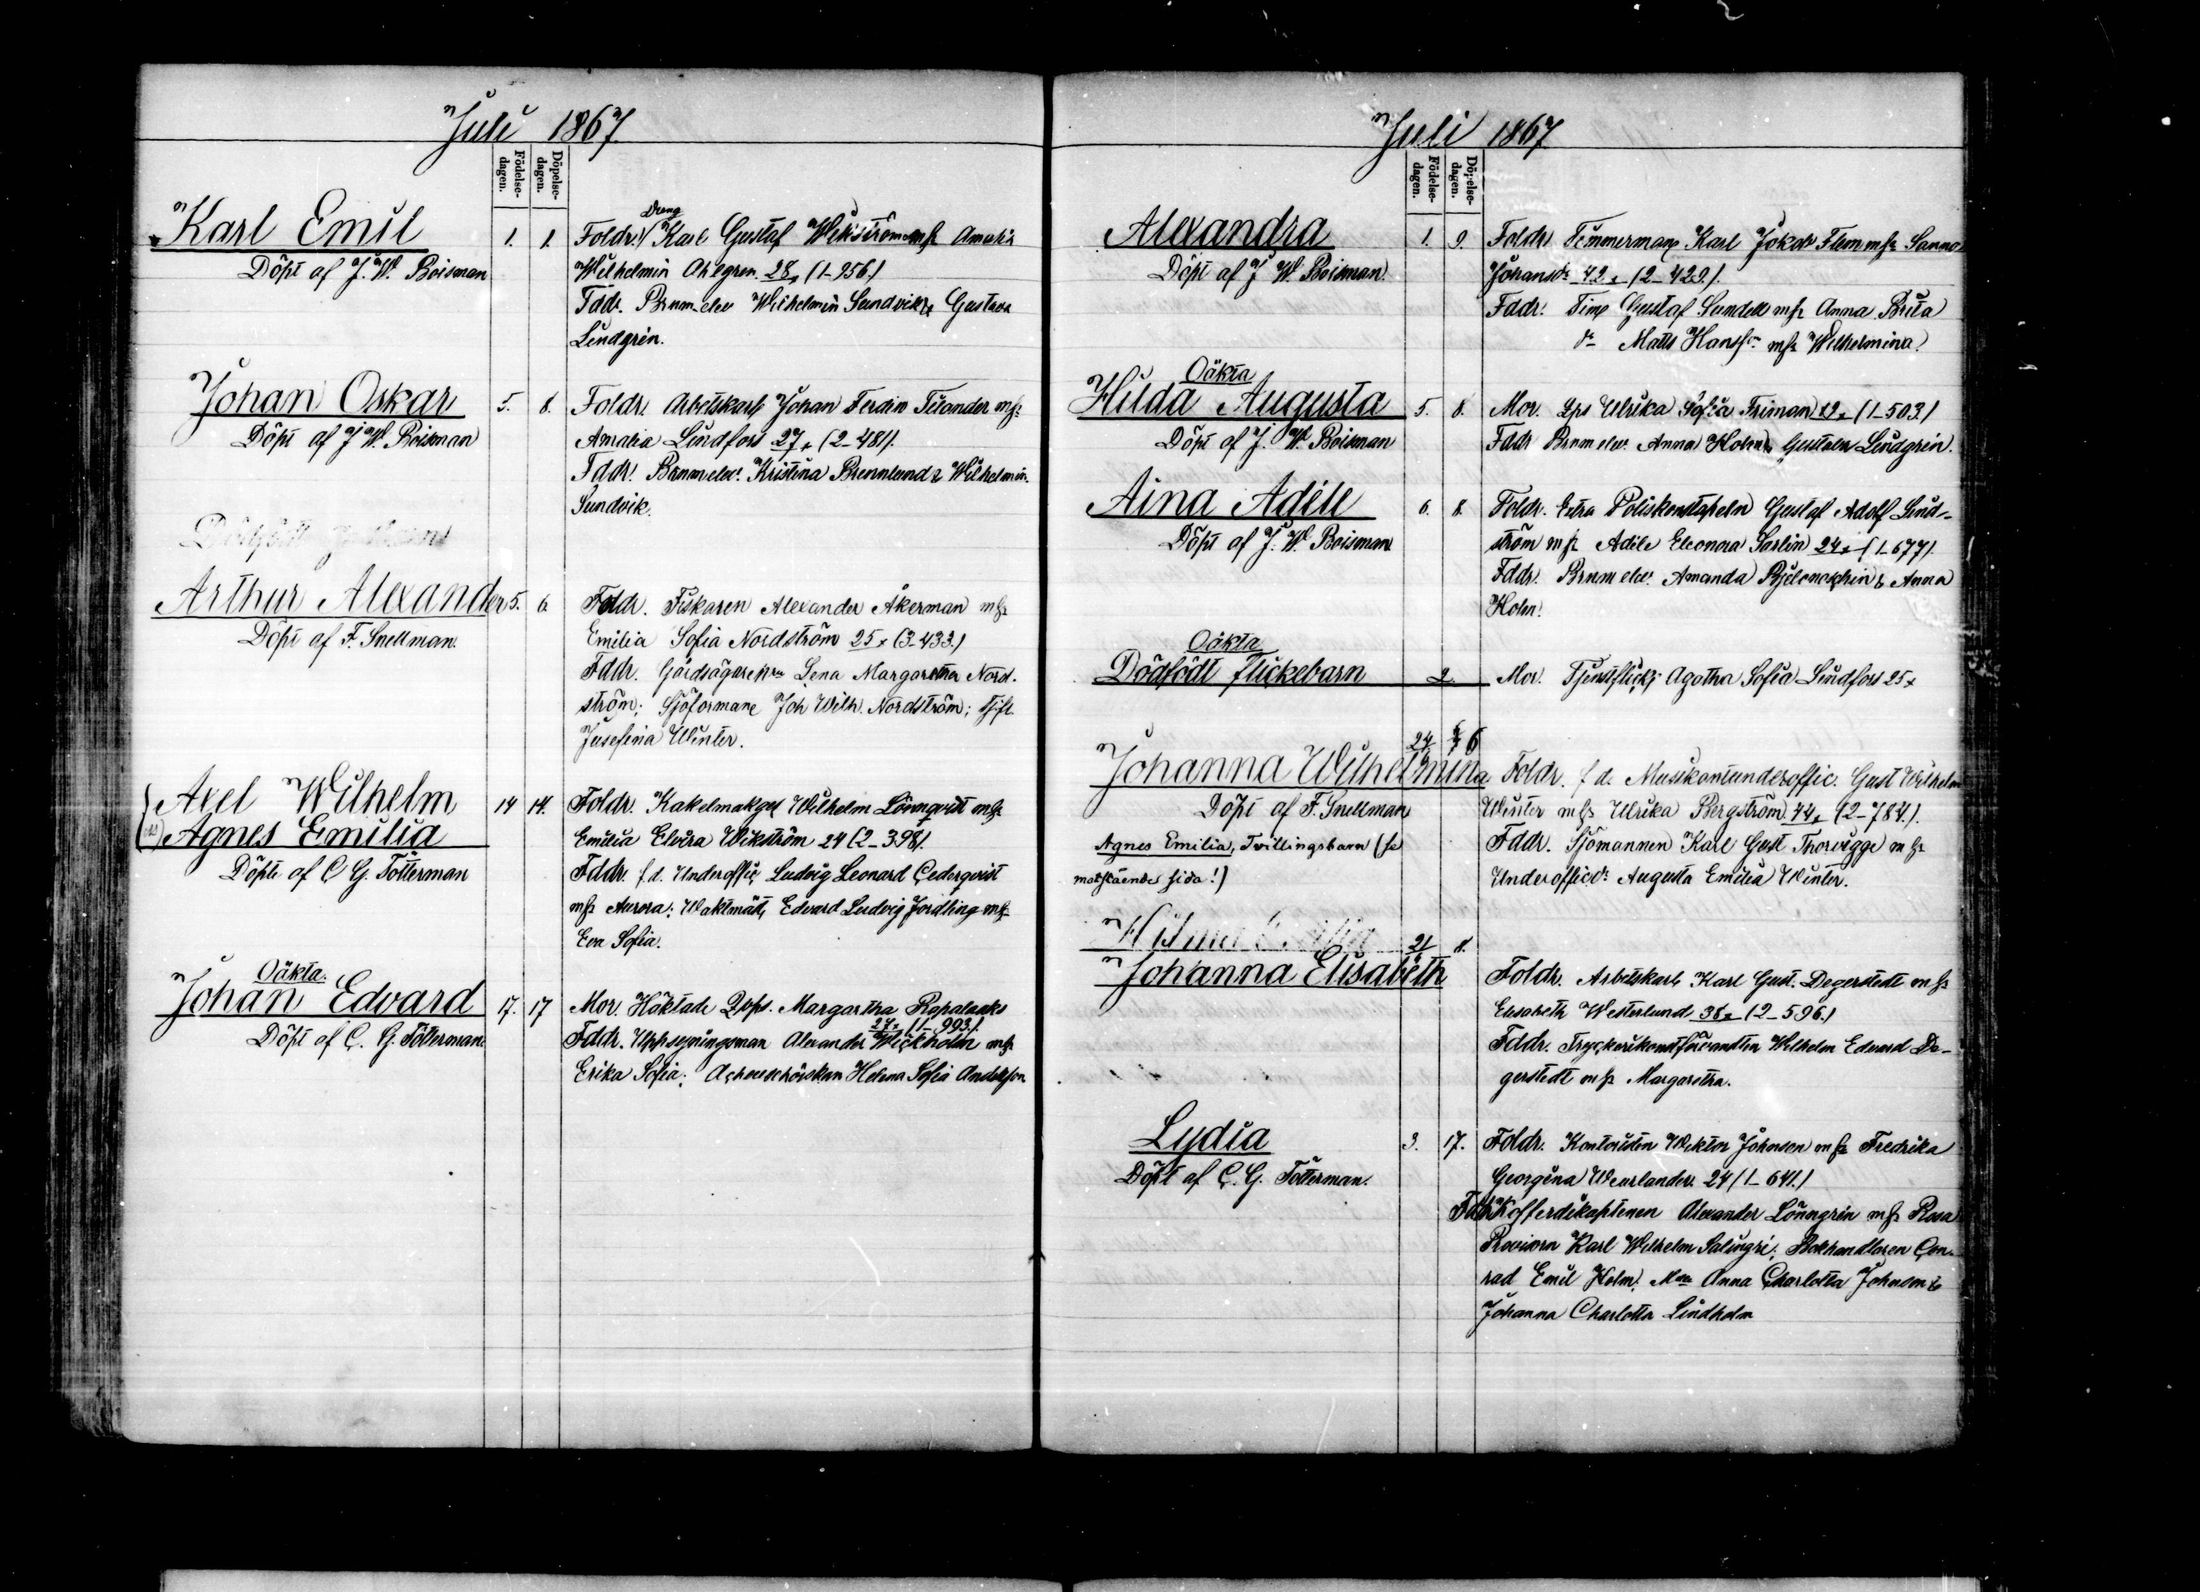 Juli 1867.
Födelse-
dagen.
Döpelse-
dagen.
Karl Emil
1. 1.
Döpt af J. W. Boisman
Dreng
Foldr. Karl Gustaf Wikström m hr Amalia
Wilhelmin Ahlgren 28, (1-956.)
Fddr. Brnm elev Wilhelmin Sundvik & Gustava
Lindgrin.
Johan Oskar
5. 8.
Döpt af J W. Boisman
Foldr. Arbetskarl Johan Ferdin Telander m hr
Amalia Lindfors 27, (2-481).
Fddr. Brnm elev. Kristina Brennlund & Wilhelmin.
Sundvik.
Arthur Alexander
5. 6
Döpt af F. Snellman.
Foldr. Fiskaren Alexander Åkerman m hr
Emilia Sofia Nordström 25, (3-433.)
Fddr. Gårdsägare Lena Margaretha Nord-
ström; Sjöformane Joh Wilh. Nordström;
Josefina Winter.
Axel Wilhelm
Agnes Emilia
14 14.
Döpte af C G. Totterman
Foldr. Kakelmakges Wilhelm Lönnqvist m hr
Emilia Elvira Wikström 24 (2-398).
Fddr. f. d. Underoffic Ludvig Leonard Cederqvist
m hr Aurora; Waktmäst. Edvard Ludvig Jordling m hr
Eva Sofia.
Oäkta.
Johan Edvard
17. 17
Döpt af C. G. Totterman.
Mor. Häktade Qvps. Margaretha
27, (1-993).
Fddr. Uppsyningsman Alexander Wickholm m hr
Erika Sofia; Helena Sofia Andersson
Juli 1867
Födelse-
dagen.
Döpelse-
dagen.
Alexandra
1. 9.
Döpt af J W. Boisman.
Foldr. Timmerman Karl Jakob Flem m hr Sanna
Johansdr 42, (2-429).
Fddr. Tim Gustaf Sundell m hr Anna Brita
dr Matts Hansson m hr Wilhelmina.
Oäkta
Hilda Augusta
5. 8.
Döpt af J. W. Boisman
Mor. Qps Ulrika Sofia Friman 29, (1-503.)
Fddr Brnm elev. Anna Holm & Gustava Lindgrin.
Aina Adele
6. 8.
Döpt af J. W. Boisman
Foldr. Extra Poliskonstapeln Gustaf Adolf Lind-
ström m hr Adele Eleonora Sarlin 24, (1-677).
Fddr. Brnm elev. Amanda & Anna
Holm.
Oäkta
Dödfödt flickebarn
2.
Mor. Tjenstflick Agatha Sofia Lindfors 25,
24 6
Johanna Wilhelmina
Döpt af F. Snellman
Foldr. f d. Musikantunderoffic. Gust Wilhelm
Winter m hr Ulrika Bergström 44, (2-784.).
Fddr. Sjömannen Karl Gust Thorvigge m hr
Underofficdr Augusta Emilia Winter.
Agnes Emilia, Tvillingsbarn (se
motstående sida!)
21 8.
Johanna Elisabeth
Foldr. Arbetskarl Karl Gust. Degerstedt m hr
Elisabeth Westerlund 38, (2-596.)
Fddr. Tryckerikonstförvandten Wilhelm Edvard De-
gerstedt m hr Margaretha.
Lydia
3. 17.
Döpt af C. G. Totterman.
Foldr. Kontoristen Wiktor Johnson m hr Fredrika
Georgina Weurlander 24 (1-641.)
Fddr. Kofferdikaptenen Alexander Lönngrin m hr Rosa
Revisorn Karl Wilhelm Salingré; Bokhandlaren Con-
rad Emil Holm; Anna Charlotta Johnson &
Johanna Charlotta Lindholm